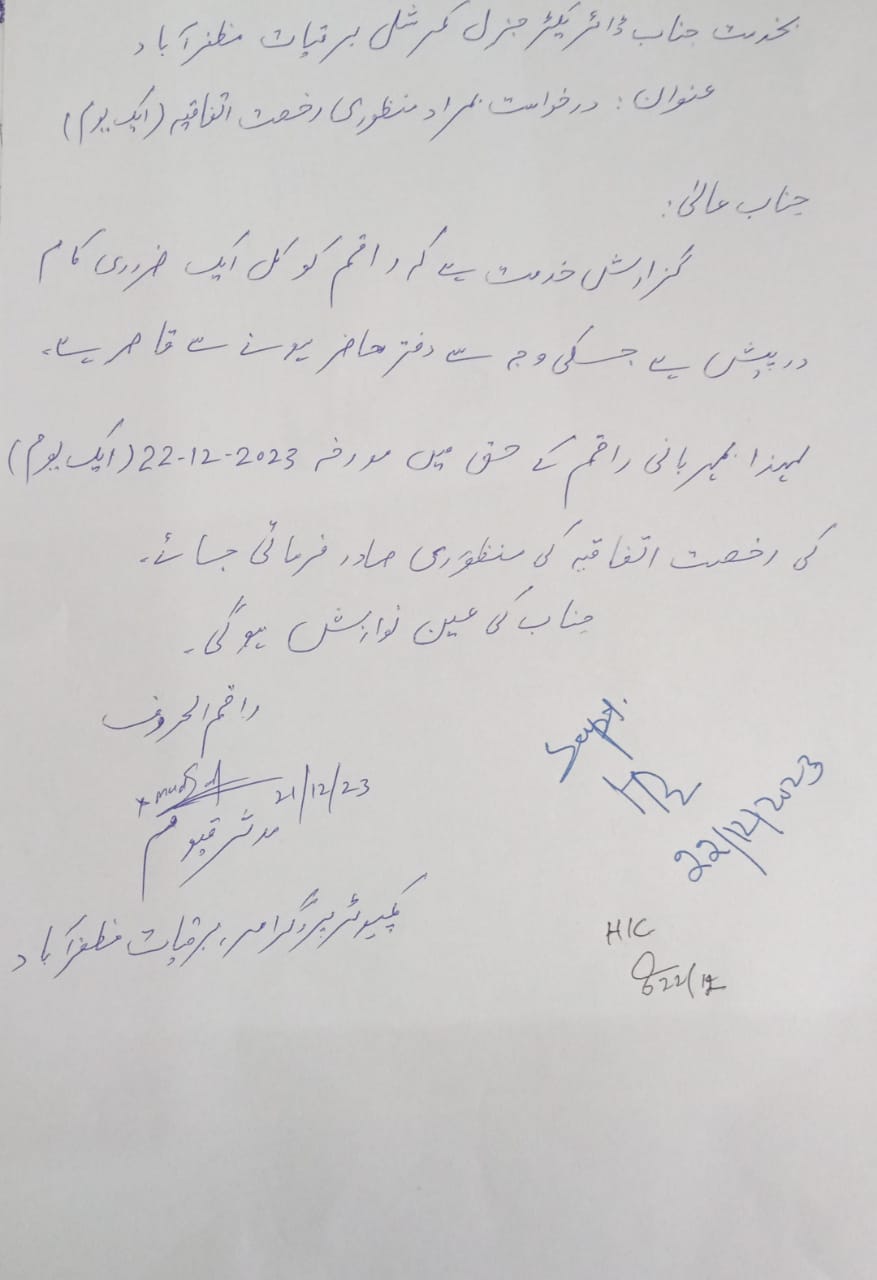 بخدمت جناب ڈائریکٹر جنرل کمرشل برقیات مظفرآباد
عنوان: درخواست بمراد منظوری رخصت اتفاقیہ (ایک یوم)
جناب عالی:
گزارش خدمت ہے کہ راقم کو کل ایک ضروری کام
درپیش ہے جسکی وجہ سے دفتر حاضر ہونے سے قاصر ہے۔
لہذا بمہربانی راقم کے حق میں مورخہ 22-12-2023 (ایک یوم)
کی رخصت اتفاقیہ کی منظوری صادر فرمائی جائے۔
جناب کی عین نوازش ہوگی۔
راقم الحروف
21/12/23
مدثر قیوم
کمپیوٹر پروگرامر، برقیات مظفرآباد
Supt.
22/12/2023
H/C
22/12